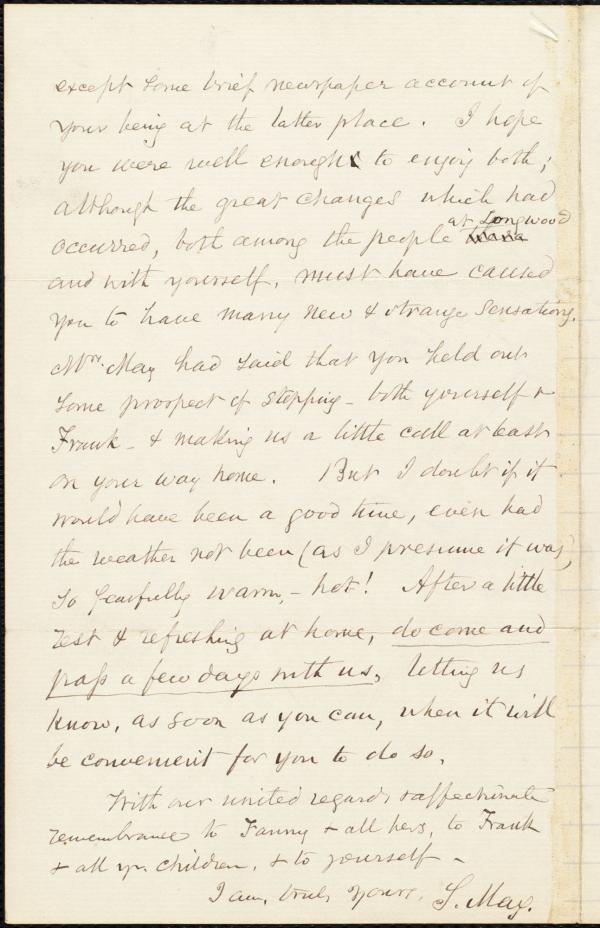 except some brief newspaper account of
your being at the latter place. I hope
you were well enough to enjoy both;
although the great changes which had
occurred, both among the people at Longwood
and with yourself, must have caused
you to have many new & strange sensations.
Mrs. May had said that you held out
some prospect of stopping - both yourself &
Frank - & making us a little call at least
on your way home. But I doubt if it
would have been a good time, even had
the weather not been (as I presume it was)
so fearfully warm, - hot! After a little
rest & refreshing at home, do come and
pass a few days with us, letting us
know, as soon as you can, when it will
be convenient for you to do so.
With our united regards & affectionate
remembrance to Fanny & all hers, to Frank
& all yr. children, & to yourself -
I am, truly yours, S. May.